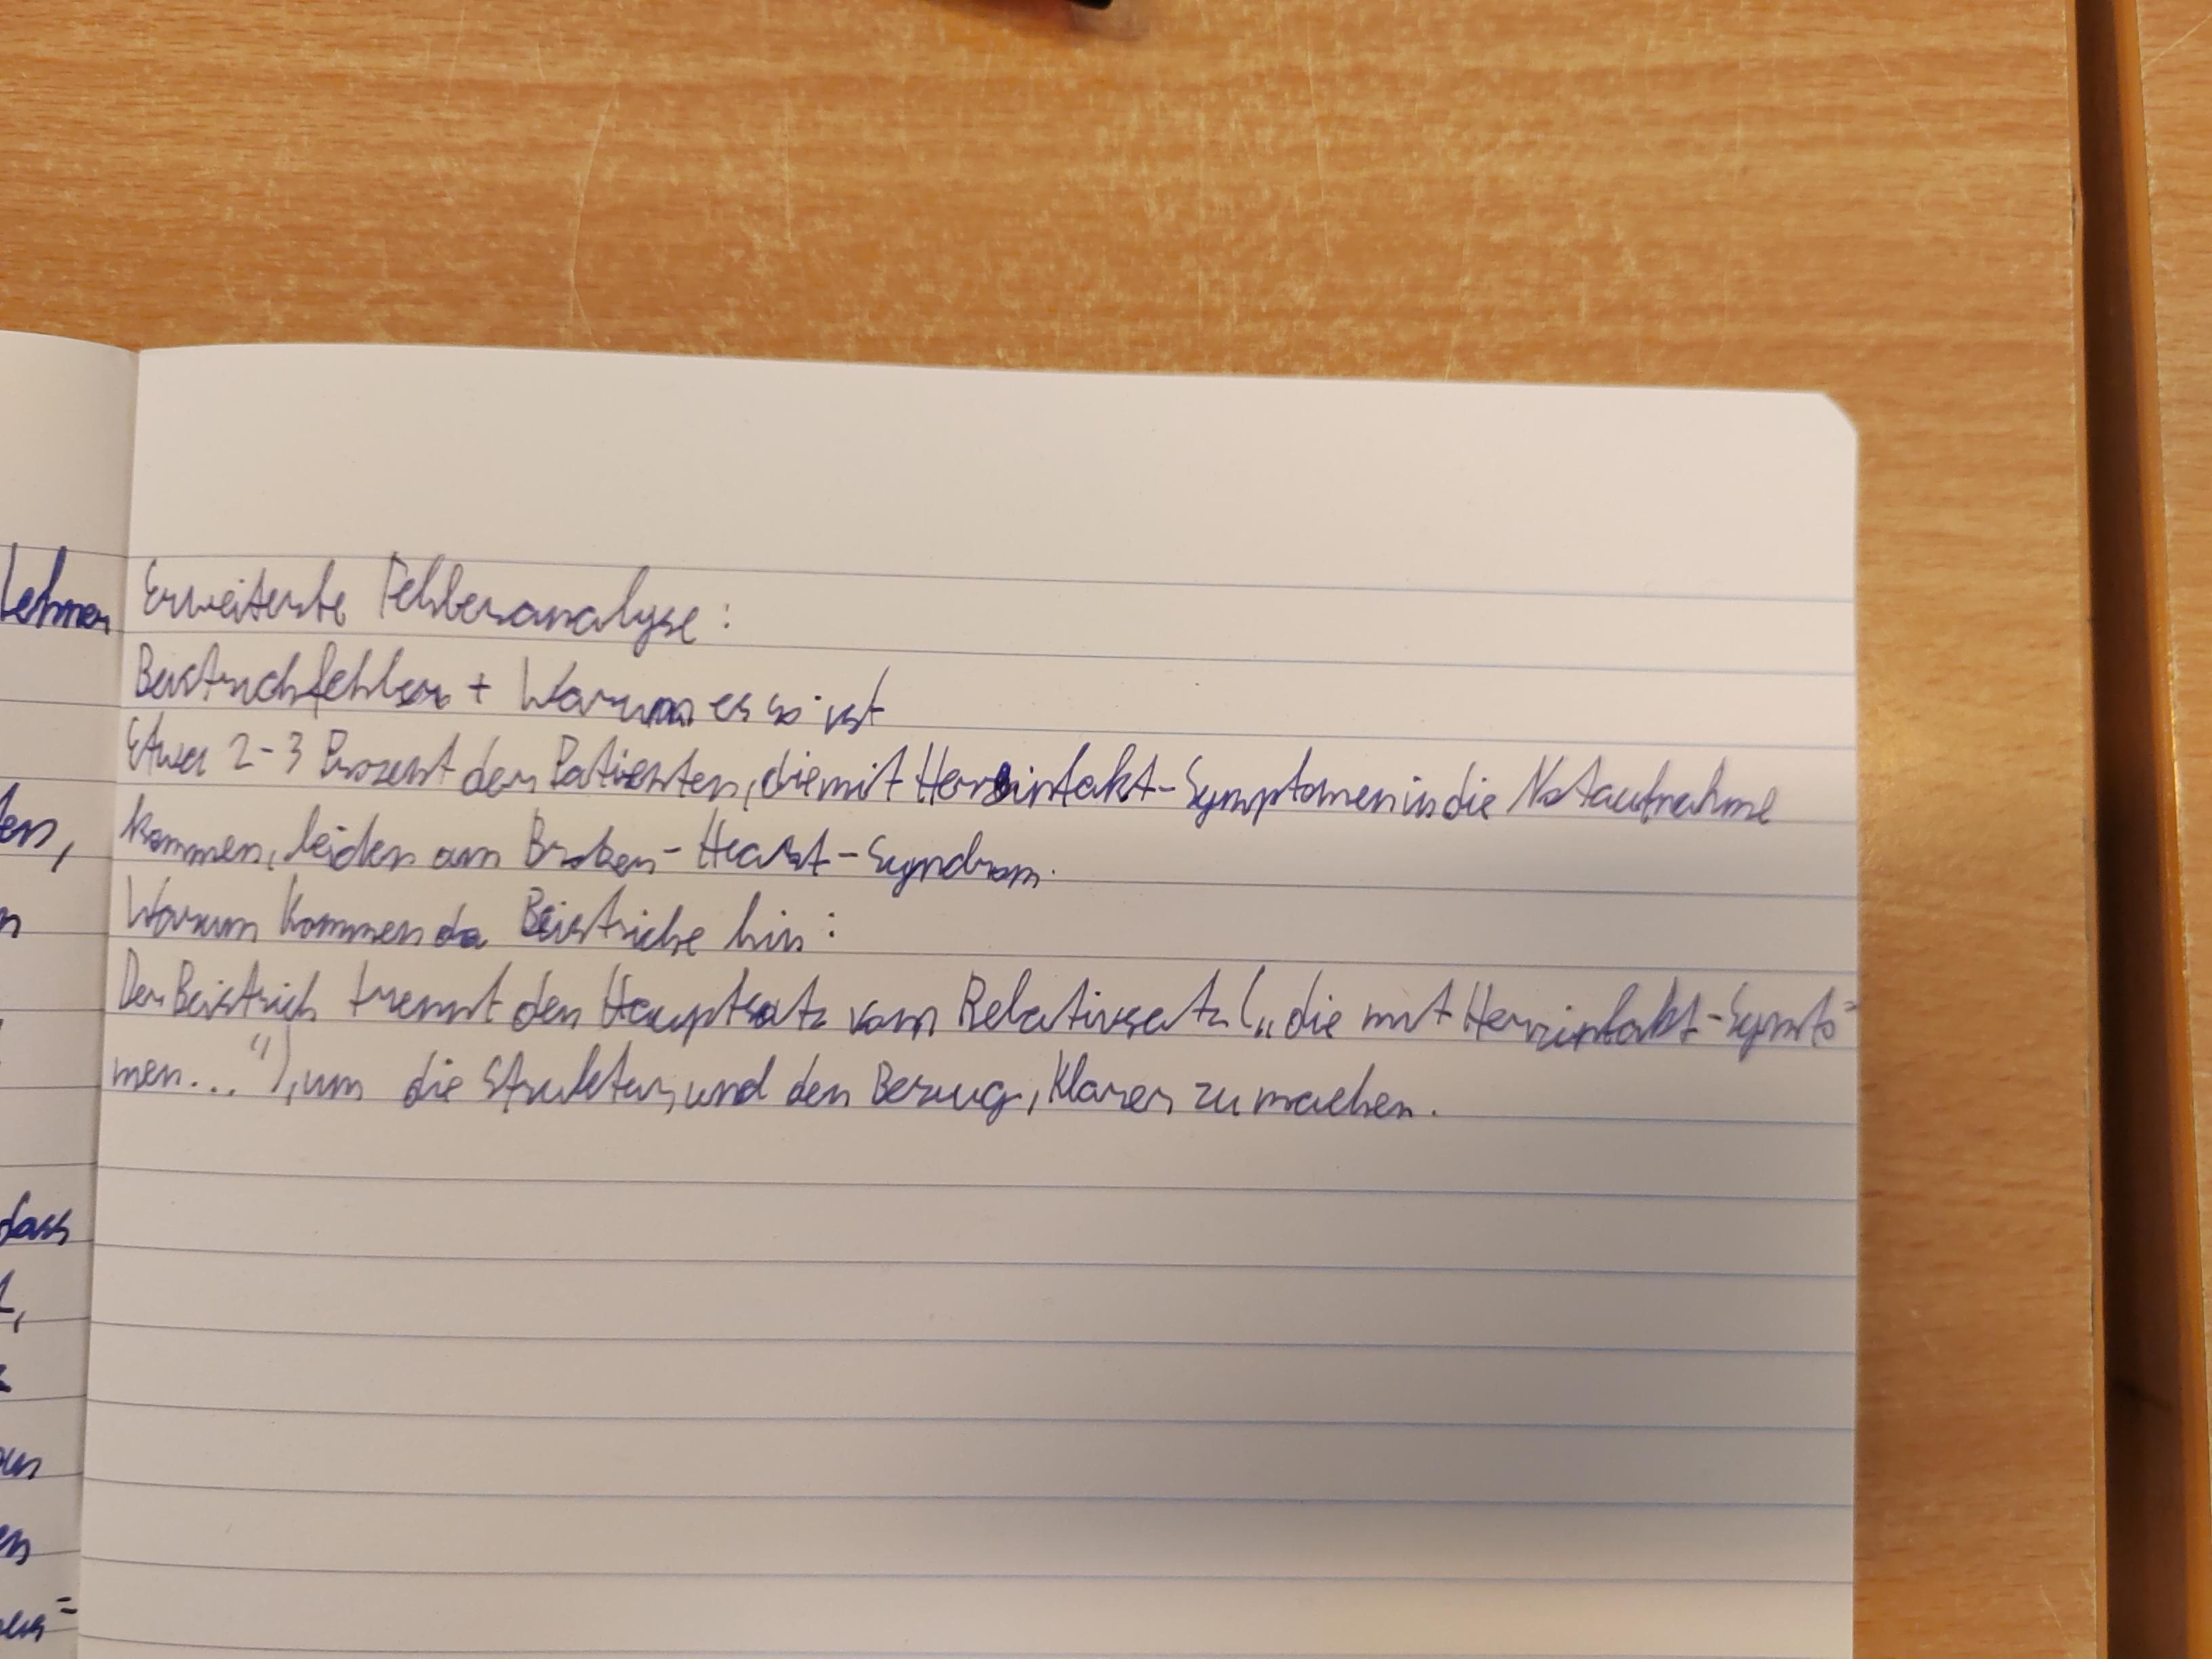 Lehrer
Erweiterte Fehleranalyse:
Beistrichfehler + Warum es so ist
Etwa 2-3 Prozent der Patienten, die mit Herzinfakt-Symptomen in die Notaufnahme
kommen, leiden am Broken-Heart-Syndrom.
Warum kommen da Beistriche hin:
Der Beistrich trennt den Hauptsatz vom Relativsatz („die mit Herzinfakt-Symto=
men..."), um die Struktur, und den Bezug, klarer zu machen.
ten,
dass